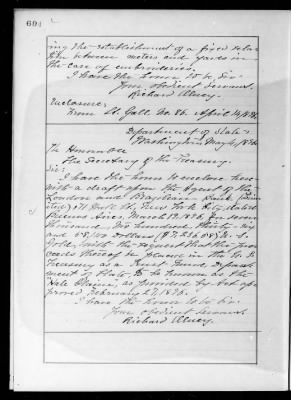 ing the establishment of a fixed rela-
tion between meters and yards in
the case of embroideries.
I have the honor to be Sir:
Your obedient servant
Richard Olney.
Enclosure:
From St. Gall, No. 86. April 14, 1896.
Department of State
Washington, May 4, 1896
The Honorable
The Secretary of the Treasury.
Sir:
I have the honor to enclose here-
with a draft upon the Agent of the
London and Brazilian Bank (Limi-
ted) Wall St, New York City, dated
Buenos Aires, March 12, 1896, for seven
thousand, two hundred, thirty-six
and 58/100 dollars ($7,236.58) U. S.
Gold, with the request that the pro-
ceeds thereof be placed in the U. S.
Treasury as a Trust Fund, Depart-
ment of State, to be known as the
"Hale Claim", as provided by Act ap-
proved February 27, 1896.
I have the honor to be Sir:
Your obedient servant
Richard Olney.